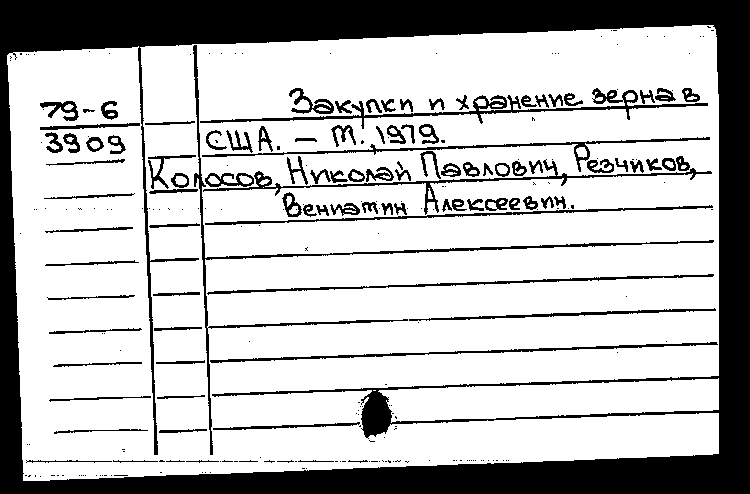 79-6 Закупки и хранение зерна в
3909 США. – М., 1979.
Колосов, Николай Павлович, Резчиков,
Вениамин Алексеевич.